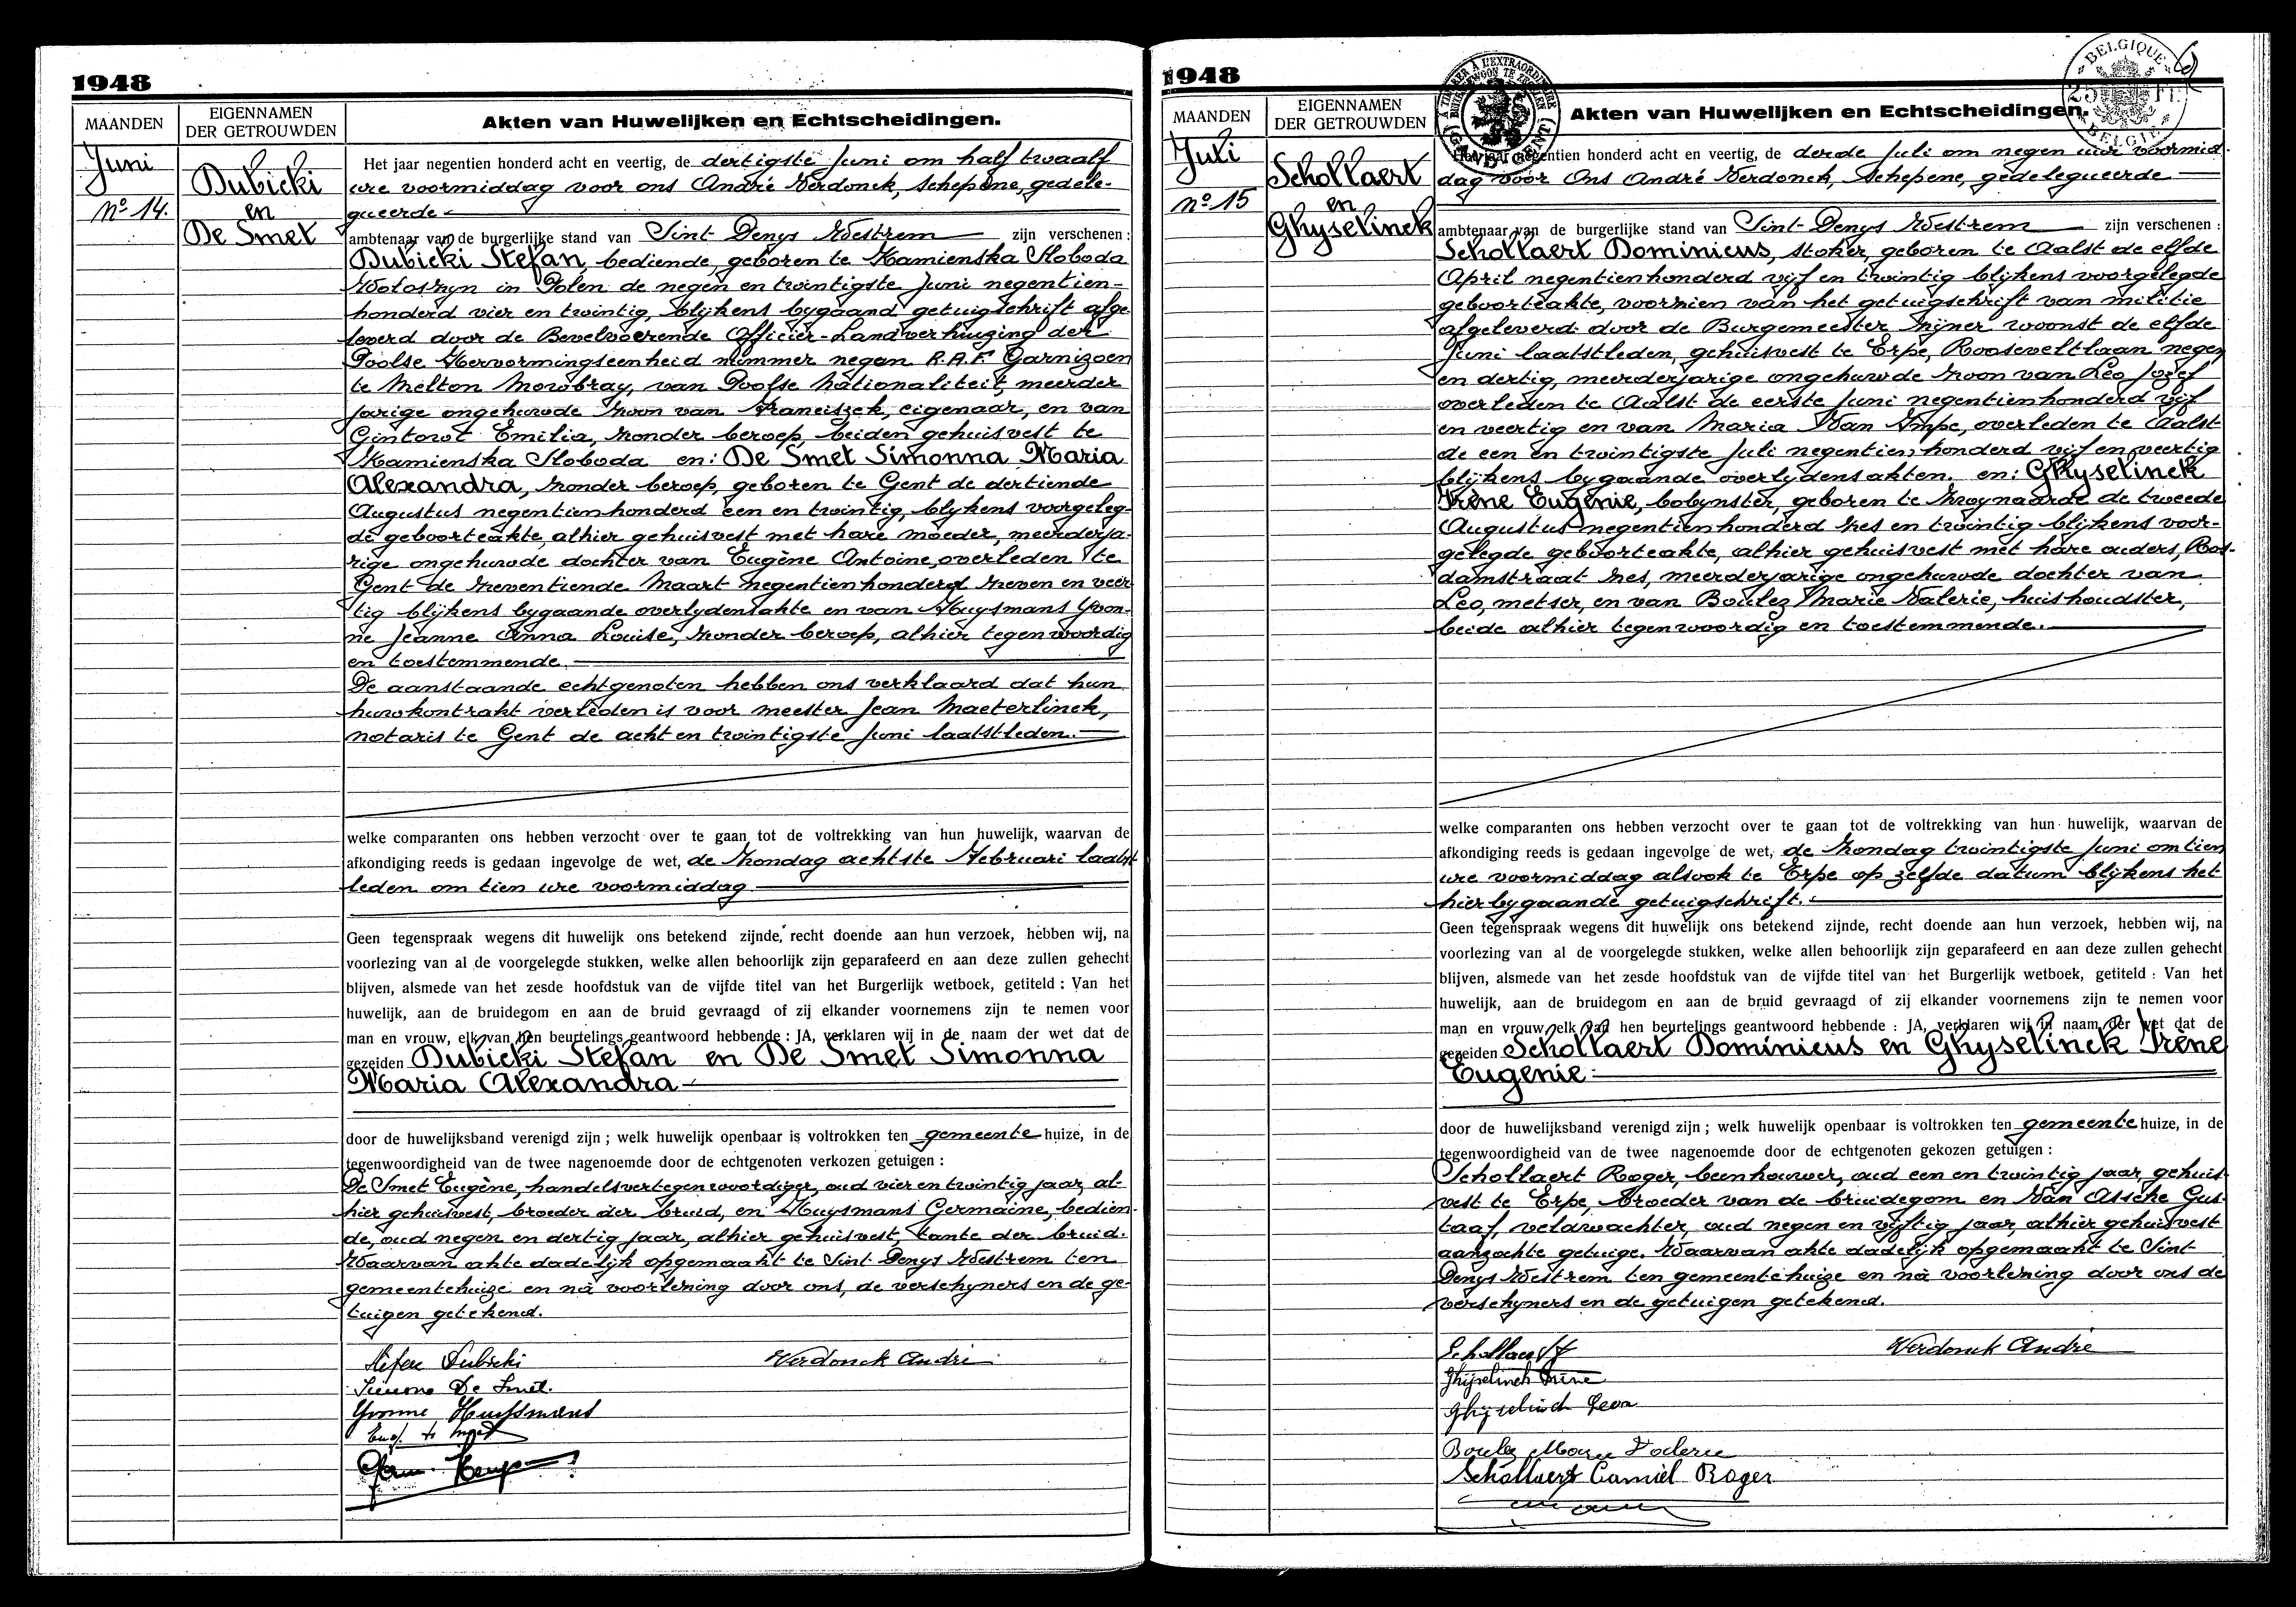 1948
MAANDEN
EIGENNAMEN
DER GETROUWDEN
Akten van Huwelijken en Echtscheidingen.
Juni
Nº 14.
Dubicki
en
De Smet
Het jaar negentien honderd acht en veertig, de dertigste Juni om half twaalf
ure voormiddag voor ons André Verdonck, schepene, gedele-
gueerde
ambtenaar van de burgerlijke stand van Sint Denys Westrem zijn verschenen :
Dubicki Stefan, bediende, geboren te Kamienska Sloboda
in Polen de negen en twintigste Juni negentien-
honderd vier en twintig, blijkens bygaand getuigschrift afge-
leverd door de Bevelvoerende Officier-Landverhuizing der
Poolse Hervormingseenheid nummer negen R.A.F. Garnizoen
te Melton Mowbray, van Poolse Nationaliteit, meerder
jarige ongehuwde zoon van Franciszek, eigenaar, en van
Gintowt Emilia, zonder beroep, beiden gehuisvest te
Kamienska Sloboda en: De Smet Simonna Maria
Alexandra, zonder beroep, geboren te Gent de dertiende
Augustus negentienhonderd een en twintig, blykens voorgeleg-
de geboorteakte, alhier gehuisvest met hare moeder, meerderja-
rige ongehuwde dochter van Eugène Antoine, overleden te
Gent de zeventiende Maart negentienhonderd zeven en veer
tig blijkens bygaande overlydensakte en van Huysmans Yvon-
ne Jeanne Anna Louise, zonder beroep, alhier tegenwoordig
en toestemmende.
De aanstaande echtgenoten hebben ons verklaard dat hun
huwkontrakt verleden is voor meester Jean Maeterlinck,
notaris te Gent de acht en twintigste Juni laatstleden.
welke comparanten ons hebben verzocht over te gaan tot de voltrekking van hun huwelijk, waarvan de
afkondiging reeds is gedaan ingevolge de wet, de Zondag achtste Februari laatst
leden om tien ure voormiddag
Geen tegenspraak wegens dit huwelijk ons betekend zijnde, recht doende aan hun verzoek, hebben wij, na
voorlezing van al de voorgelegde stukken, welke allen behoorlijk zijn geparafeerd en aan deze zullen gehecht
blijven, alsmede van het zesde hoofdstuk van de vijfde titel van het Burgerlijk wetboek, getiteld : Van het
huwelijk, aan de bruidegom en aan de bruid gevraagd of zij elkander voornemens zijn te nemen voor
man en vrouw, elk van hen beurtelings geantwoord hebbende : JA, verklaren wij in de naam der wet dat de
gezeiden Dubicki Stefan en De Smet Simonna
Maria Alexandra
door de huwelijksband verenigd zijn ; welk huwelijk openbaar is voltrokken ten gemeente huize, in de
tegenwoordigheid van de twee nagenoemde door de echtgenoten verkozen getuigen :
De Smet Eugène, handelsvertegenwoordiger, oud vier en twintig jaar, al-
hier gehuisvest, broeder der bruid, en Huysmans Germaine, bedien-
de, oud negen en dertig jaar, alhier gehuisvest, tante der bruid.
Waarvan akte dadelijk opgemaakt te Sint Denys Westrem ten
gemeentehuize en nà voorlezing door ons, de verschyners en de ge-
tuigen getekend.
Stefan Dubicki
Verdonck André
Simone De Smet.
Yvonne Huysmans
Eug. de Smet
Germ. Huys
1948
MAANDEN
EIGENNAMEN
DER GETROUWDEN
Akten van Huwelijken en Echtscheidingen.
BELGIQUE
25 Fr.
BELGIË
Juli
Nº 15
Schollaert
en
Ghyselinck
Het jaar negentien honderd acht en veertig, de derde Juli om negen uur voormid-
dag voor Ons André Verdonck, schepene, gedelegueerde
ambtenaar van de burgerlijke stand van Sint-Denys Westrem zijn verschenen :
Schollaert Dominicus, stoker, geboren te Aalst de elfde
April negentienhonderd vyf en twintig blijkens voorgelegde
geboorteakte, voorzien van het getuigschrift van militie
afgeleverd door de Burgemeester zijner woonst de elfde
Juni laatstleden, gehuisvest te Erpe, Rooseveltlaan negen
en dertig, meerderjarige ongehuwde zoon van Leo Jozef
overleden te Aalst de eerste Juni negentienhonderd vyf
en veertig en van Maria Van Impe, overleden te Aalst
de een en twintigste Juli negentien honderd vijf en veertig
blijkens bygaande overlydensakten. en: Ghyselinck
Irène Eugénie, bobynster, geboren te Zwynaarde de tweede
Augustus negentienhonderd zes en twintig blijkens voor-
gelegde geboorteakte, alhier gehuisvest met hare ouders, Ros-
damstraat zes, meerderjarige ongehuwde dochter van
Leo, metser, en van Boulez Marie Valerie, huishoudster,
beide alhier tegenwoordig en toestemmende.
welke comparanten ons hebben verzocht over te gaan tot de voltrekking van hun huwelijk, waarvan de
afkondiging reeds is gedaan ingevolge de wet, de Zondag twintigste Juni om tien
ure voormiddag alsook te Erpe op zelfde datum blijkens het
hierbygaande getuigschrift.
Geen tegenspraak wegens dit huwelijk ons betekend zijnde, recht doende aan hun verzoek, hebben wij, na
voorlezing van al de voorgelegde stukken, welke allen behoorlijk zijn geparafeerd en aan deze zullen gehecht
blijven, alsmede van het zesde hoofdstuk van de vijfde titel van het Burgerlijk wetboek, getiteld : Van het
huwelijk, aan de bruidegom en aan de bruid gevraagd of zij elkander voornemens zijn te nemen voor
man en vrouw, elk van hen beurtelings geantwoord hebbende : JA, verklaren wij in naam der wet dat de
gezeiden Schollaert Dominicus en Ghyselinck Irène
Eugénie
door de huwelijksband verenigd zijn ; welk huwelijk openbaar is voltrokken ten gemeente huize, in de
tegenwoordigheid van de twee nagenoemde door de echtgenoten gekozen getuigen :
Schollaert Roger, beenhouwer, oud een en twintig jaar, gehuis-
vest te Erpe, broeder van de bruidegom en Van Assche Gus
taaf, veldwachter, oud negen en vyftig jaar, alhier gehuisvest
aanzochte getuige. Waarvan akte dadelijk opgemaakt te Sint
Denys Westrem ten gemeentehuize en nà voorlezing door ons de
verschyners en de getuigen getekend.
Schollaert
Verdonck André
Ghijselinck Irène
Ghijselinck Leon
Boulez Marie Valerie
Schollaert Camiel Roger